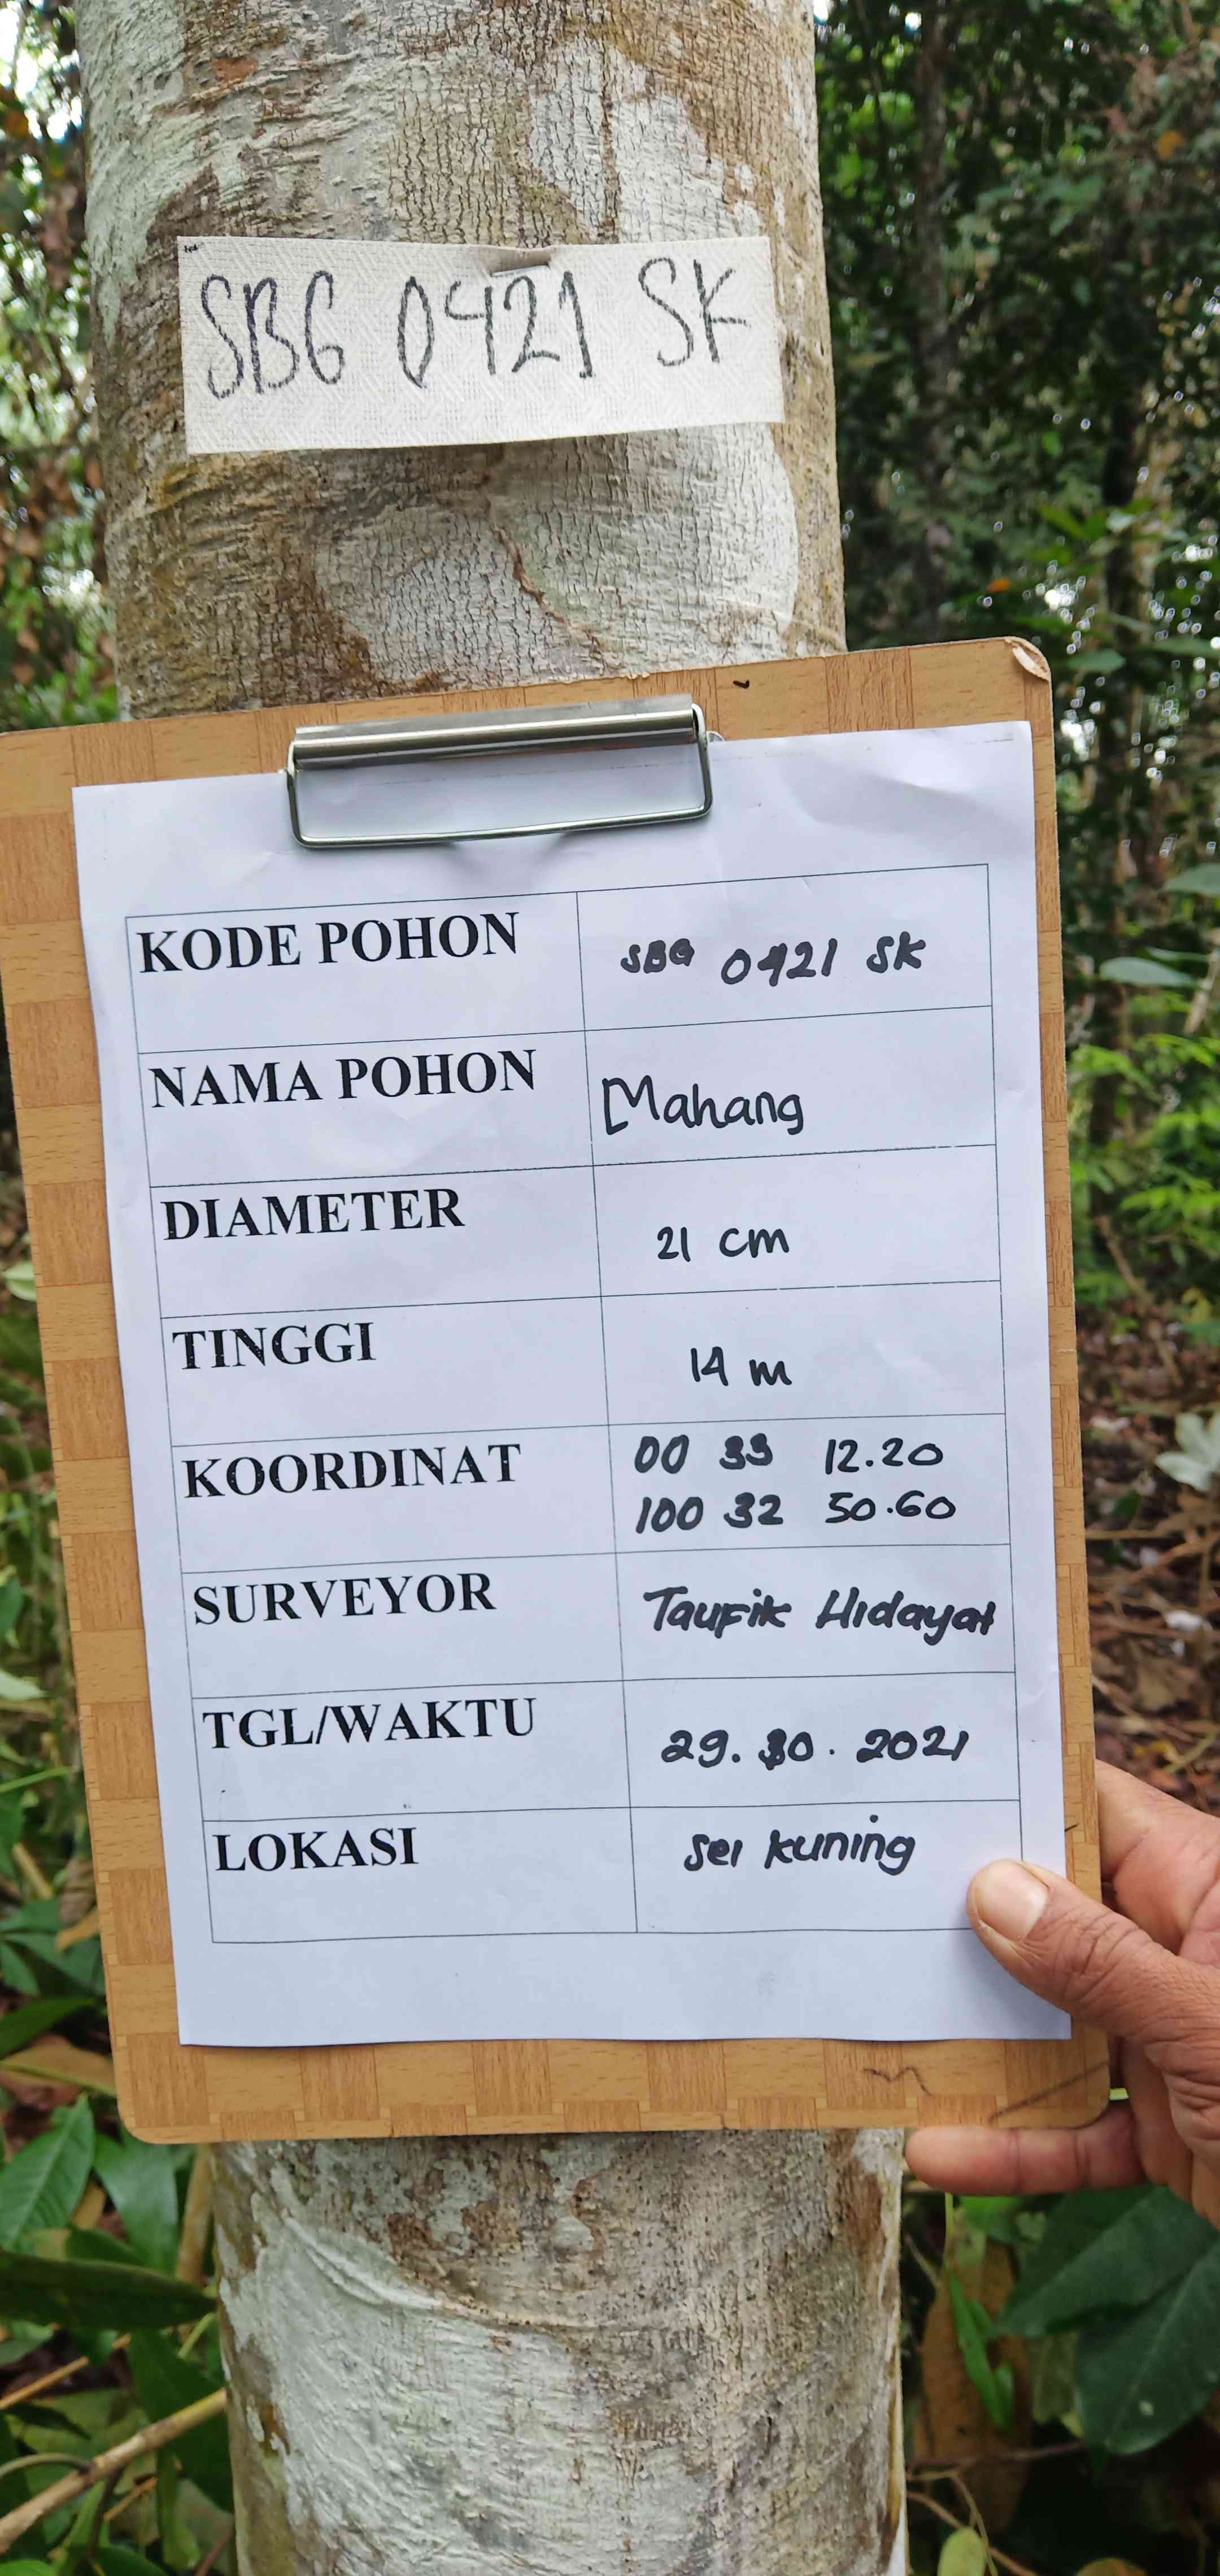 SBG 0421 SK
KODE POHON SBG 0421 SK
NAMA POHON Mahang
DIAMETER 21 cm
TINGGI 14 m
KOORDINAT 00 33 12.20
100 32 50.60
SURVEYOR Taufik Hidayat
TGL/WAKTU 29. 30. 2021
LOKASI Sei Kuning